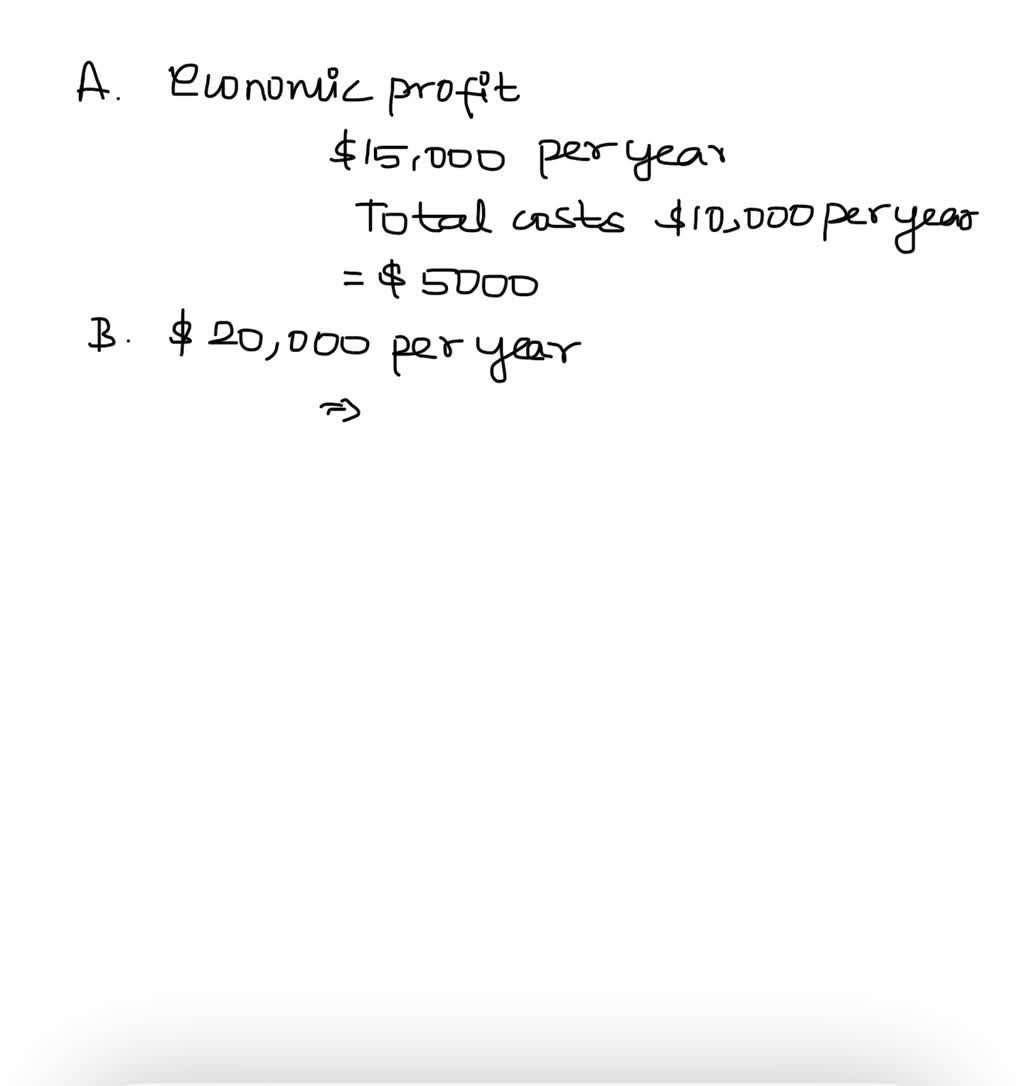 A. Economic profit
$15,000 per year
Total costs $10,000 per year
= $ 5000
B. $ 20,000 per year
⇒